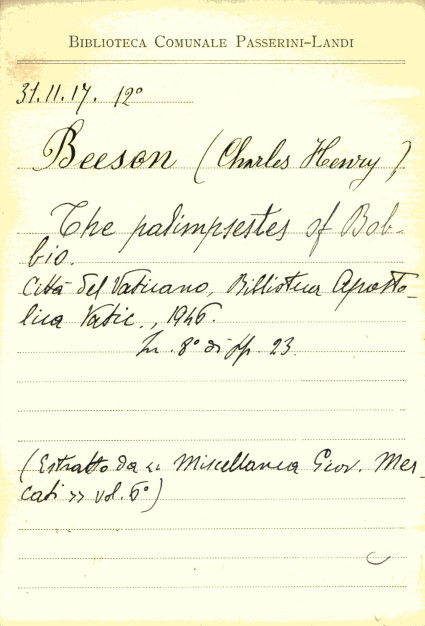 BIBLIOTECA COMUNALE PASSERINI-LANDI
31.11.17. 12°
Beeson (Charles Henry)
The palimpsestes of Bob-
bio.
Città del Vaticano, Biblioteca Aposto-
lica Vatic., 1946.
In 8° di pp. 23.
(Estratto da << Miscellanea Giov. Mer-
cati >> vol. 6°)